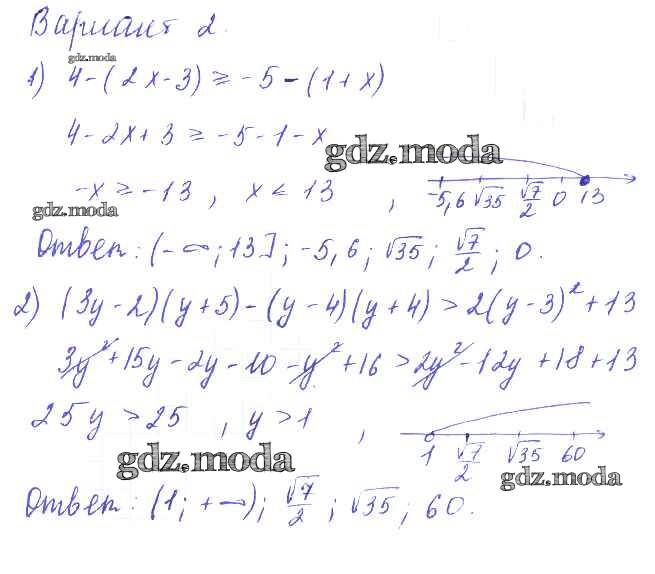 Вариант 2.
gdz.moda
1) 4-(2x-3) ≥ -5-(1+x)
4-2x+3 ≥ -5-1-x
gdz.moda
-x ≥ -13, x < 13,
-5,6 √35 √7/2 0 13
gdz.moda
Ответ: (-∞; 13]; -5,6; √35; √7/2; 0.
2) (3y-2)(y+5)-(y-4)(y+4) > 2(y-3)²+13
3y²+15y-2y-10-y²+16 > 2y²-12y+18+13
25y > 25, y > 1,
1 √7/2 √35 60
gdz.moda
gdz.moda
Ответ: (1; +∞); √7/2; √35; 60.